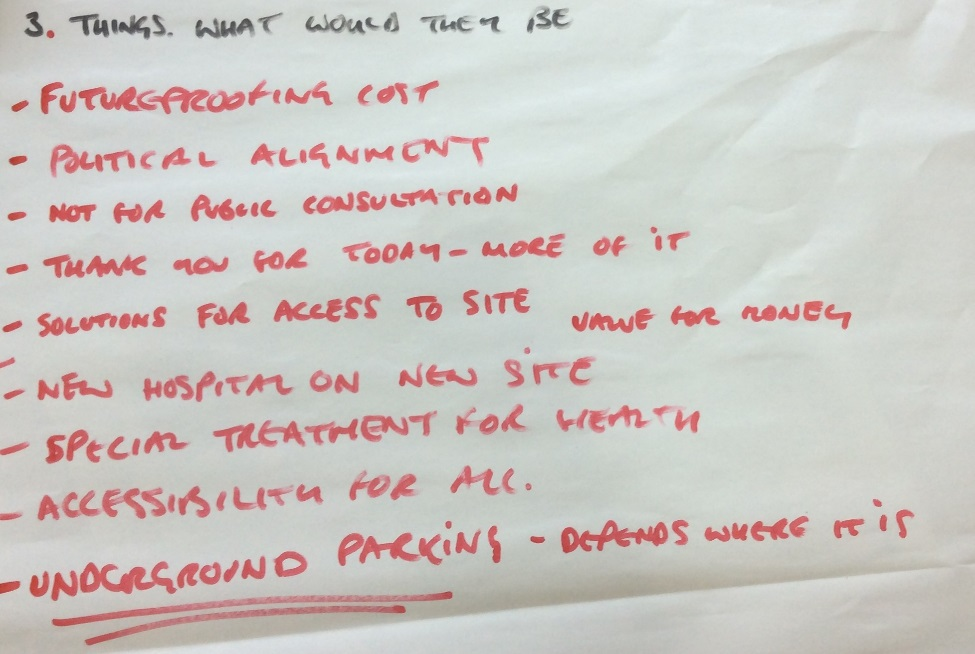 3. THINGS. WHAT WOULD THEY BE
- FUTUREPROOFING COST
- POLITICAL ALIGNMENT
- NOT FOR PUBLIC CONSULTATION
- THANK YOU FOR TODAY - MORE OF IT
- SOLUTIONS FOR ACCESS TO SITE
VALUE FOR MONEY
- NEW HOSPITAL ON NEW SITE
- SPECIAL TREATMENT FOR HEALTH
- ACCESSIBILITY FOR ALL.
- UNDERGROUND PARKING - DEPENDS WHERE IT IS